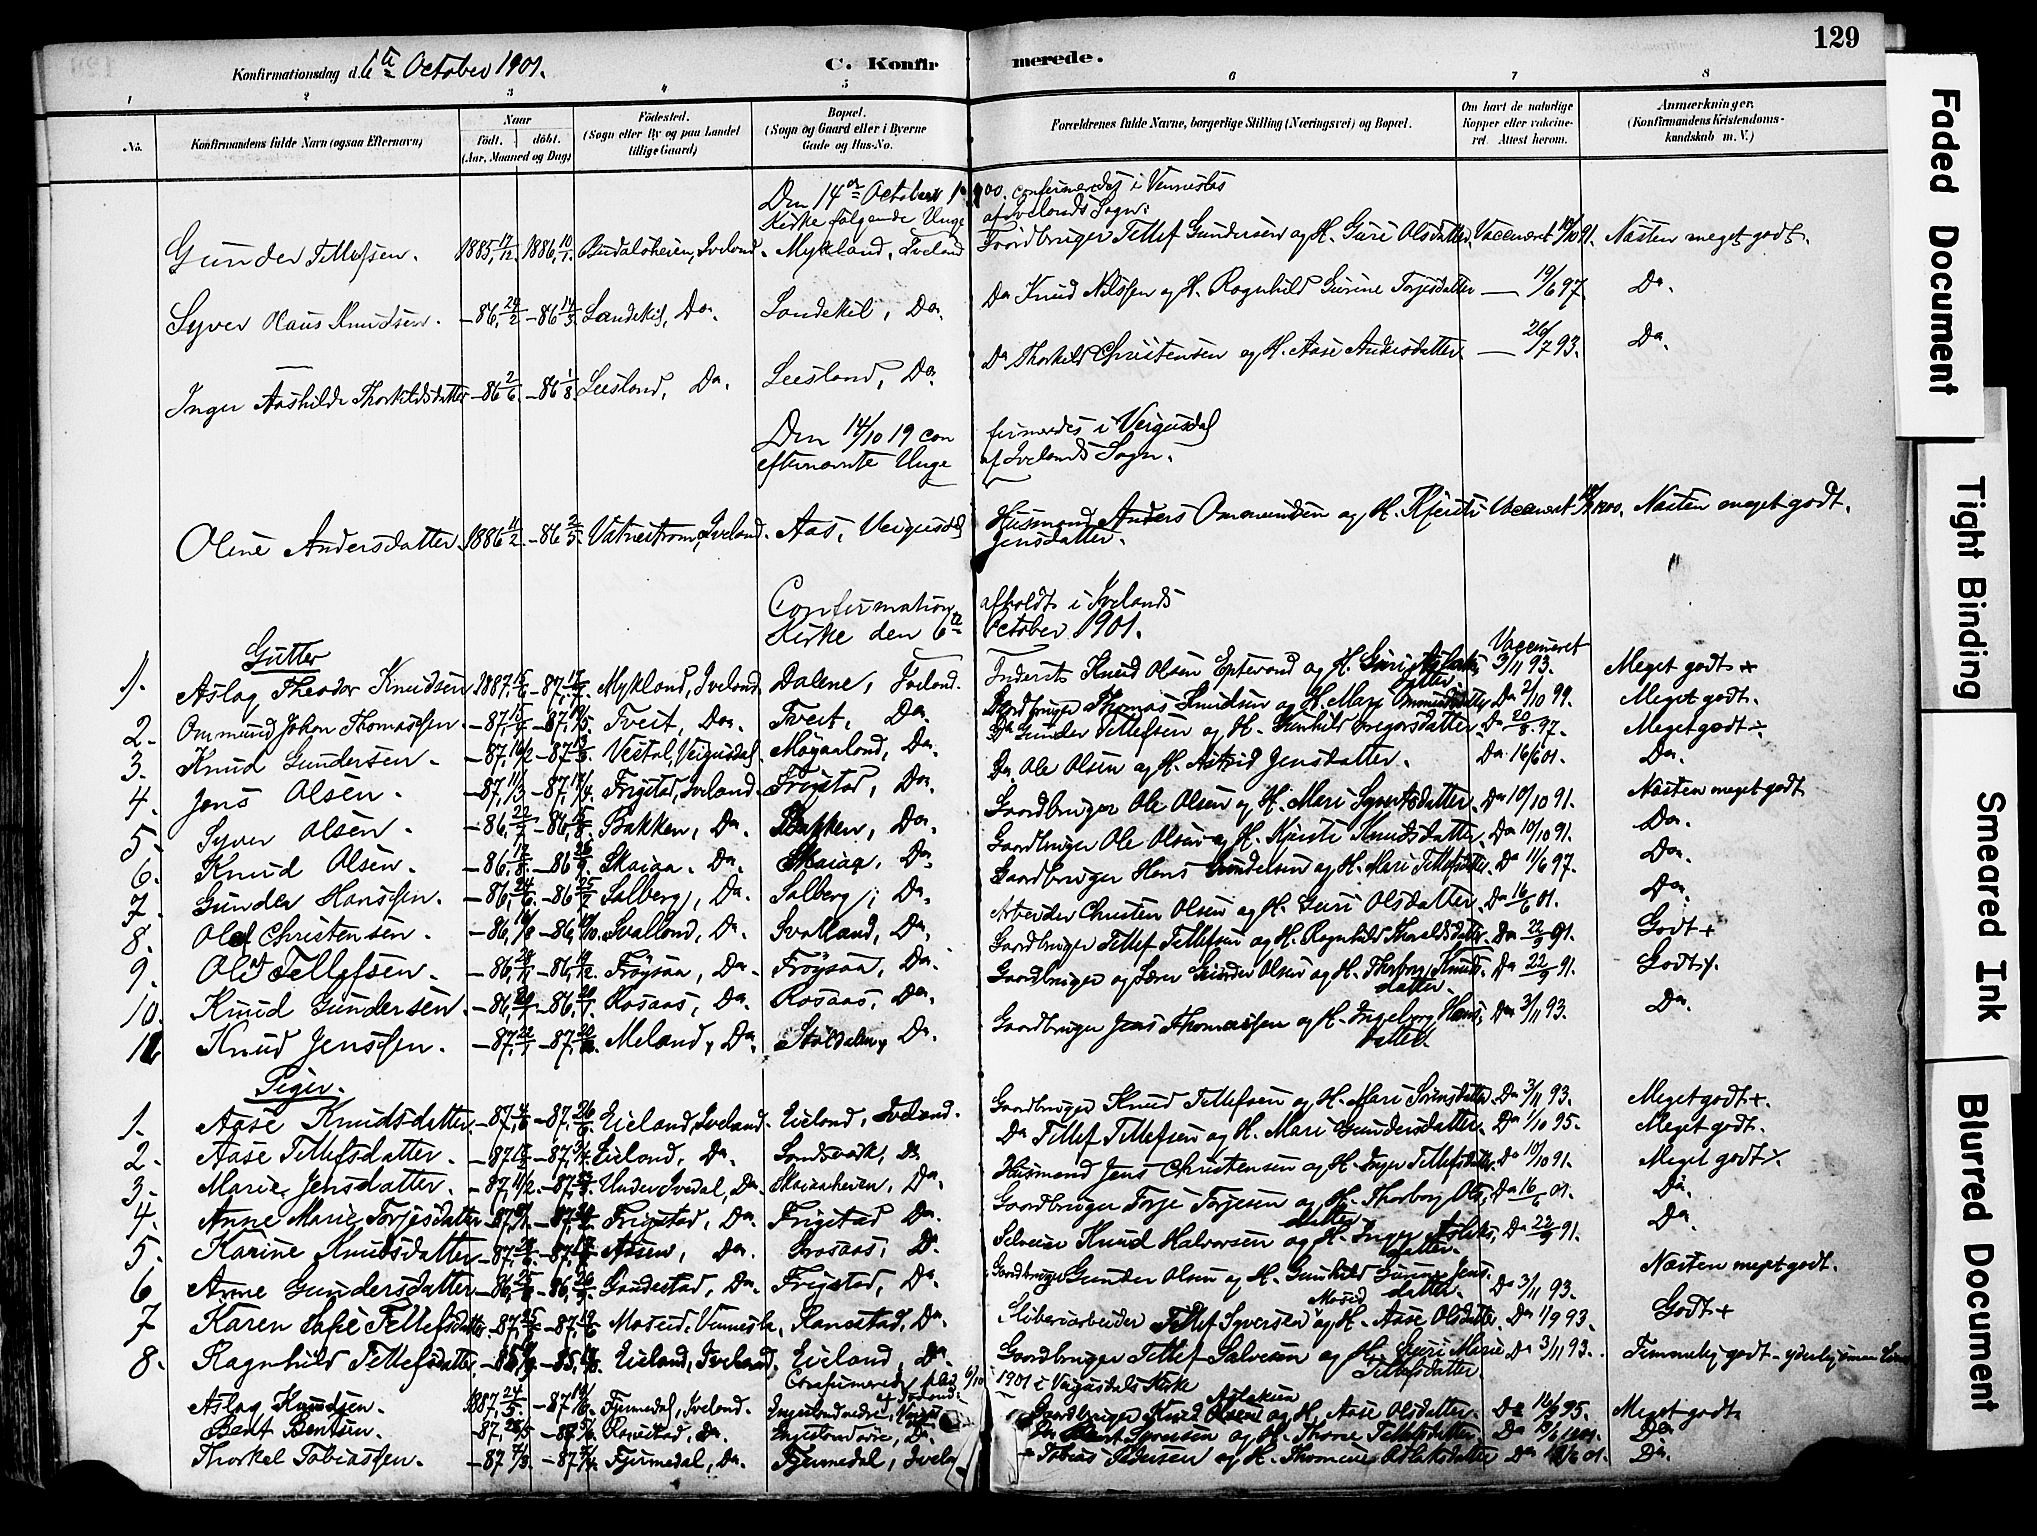 129
Konfirmationsdag d. 6te October 1901.
C. Konfirmerede.
1 2 3 4 5 6 7 8
No.
Konfirmandens fulde Navn (ogsaa Efternavn)
Naar
født. døbt.
(Aar, Maaned og Dag)
Fødested.
(Sogn eller By og paa Landet
tillige Gaard)
Bopæl.
(Sogn og Gaard eller i Byerne
Gade og Hus-No.
Forældrenes fulde Navne, borgerlige Stilling (Næringsvei) og Bopæl.
Om havt de naturlige
Kopper eller vakcine-
ret. Attest herom.
Anmærkninger.
(Konfirmandens Kristendoms-
kundskab m. V.)
Den 14de October 1900. confirmeredes i Vennesla
Kirke følgende Unge af Ivelands Sogn:
Gunder Tellefsen. 1885 17/12. 1886 10/1. Budalsheien, Iveland. Mykland, Iveland Gaardbruger Tellef Gundersen og H. Guri Olsdatter. Vaccineret 10/10 91. Næsten meget godt.
Syver Olaus Knudsen. -86, 24/2 -86 14/3 Landekil, Do. Landekil, Do. Do Knud Nilssen og H. Ragnhild Gurine Torjesdatter — 19/6 97. Do.
Inger Aashilde Thorkildsdatter -86 2/6 -86 1/8 Leesland, Do. Leesland, Do. Do Thorkild Christensen og H. Aase Andersdatter — 26/7 93. Do.
Den 14/10 19 confirmeredes i Veigusdal
efternævnte Unge af Ivelands Sogn.
Oline Andersdatter. 1886 11/2. -86 2/5. Vatnestrøm, Iveland. Aas, Veigusdal Husmand Anders Ommundsen og H. Kjersti Vaccineret 1900. Næsten meget godt.
Jensdatter.
Confirmation afholdt i Ivelands
Kirke den 6te October 1901.
Gutter
Vaccineret
1. Aslag Theodor Knudsen 1887, -87, Mykland, Iveland Dalene, Iveland. Inderst Knud Olsen Epterand og H. Guri Aslaks- 3/11 93. Meget godt +
datter.
2. Ommund Johan Thomassen. -87, -87, Tveit, Do. Tveit, Do. Gaardbruger Thomas Knudsen og H. Mari Ommundsdatter Do 2/10 99. Meget godt.
3. Knud Gundersen -87, -87 Vestal, Veigusdal. Møgaalond, Do. Do Gunder Tellefsen og H. Gunhild Gregorsdatter. Do 20/8 97. Meget godt ÷
4. Jens Olsen. -87, 11/3 -87, Frigstad, Iveland. Frigstad, Do. Do. Ole Olsen og H. Astrid Jensdatter. Do. 16/6 01. Do.
5. Syver Olsen. -86, -86, Bakken, Do. Bakken, Do. Gaardbruger Ole Olsen og H. Mari Syvertsdatter. Do 10/10 91. Næsten meget godt
6. Knud Olsen. -86, -86 Skaiaa. Do. Skaiaa, Do. Gaardbruger Ole Olsen og H. Kjersti Knudsdatter. Do 10/10 91. Do.
7. Gunder Hanssen. -86, -86 Salberg, Do. Salberg, Do. Gaardbruger Hans Gundersen og H. Mari Tellefsdatter. Do 11/6 97. Do.
8. Olaf Christensen. -86, -86, Ivalland, Do. Ivalland, Do. Arbeider Christen Olsen og H. Guri Olsdatter. Do 16/6 01. Do.
9. Olav Tellefsen. -86, -86, Frøysaa, Do. Frøysaa, Do. Gaardbruger Tellef Tellefsen og H. Ragnhild Thoraldsdatter. Do 22/9 91. Godt +
10. Knud Gundersen -86, -86 Rosaas, Do. Rosaas, Do. Gaardbruger og Lærer Gunder Olsen og H. Thorborg Knuds- Do 22/9 91. Godt.
datter.
11. Knud Jenssen. -87, -87, Meland, Do. Støldalen, Do. Gaardbruger Jens Thomassen og H. Ingeborg Hans- Do 3/11 93. Do.
datter.
Piger.
1. Aase Knudsdatter. -87, -87, Eieland, Iveland. Eieland, Iveland. Gaardbruger Knud Tellefsen og H. Mari Sørensdatter Do 3/11 93. Meget godt +.
2. Aase Tellefsdatter. -87 -87, Eieland, Do. Landsvark, Do Do Tellef Tellefsen og H. Mari Gundersdatter. Do 1/10 95. Meget godt.
3. Marie Jensdatter. -87, -87, Under Ivedal, Do. Skaiaaheien, Do. Husmand Jens Christensen og H. Inger Tellefsdatter. Do 10/10 91. Meget godt
4. Anne Marie Torjesdatter -87, -87, Frigstad, Do. Frigstad Do. Gaardbruger Torje Torjesen og H. Thorborg Ols- Do 16/6 01. Do.
datter
5. Karine Knudsdatter -87, -87, Aasen, Do. Grosaas, Do. Selveier Knud Halvorsen og H. Inger Aslaks- Do 22/9 91. Do.
datter.
6 Anne Gundersdatter -86, -86, Gaudestad, Do. Frigstad, Do. Gaardbruger Gunder Olsen og H. Gunhild Gurine Jens- Næsten meget godt.
datter. Do 3/11 93.
7 Karen Sofie Tellefsdatter -87, -87, Moseid, Vennesla, Ranestad, Do. Sliberiarbeider Tellef Syversen Moseid og H. Aase Olsdatter Do 1/9 93. Godt +
8. Ragnhild Tellefsdatter. -85, -85, Eieland, Iveland. Eieland, Do. Gaardbruger Tellef Salvesen og H. Guri Marie Do 3/11 93. Temmelig godt - yderlig
Tellefsdatter
Confirmerede 6/10 1901 i Veigusdals Kirke
Aslag Knudsen. 1887, 24/5 -87 Fjermedal, Iveland. Gaardbruger Knud Aslaksen og H. Aase Olsdatter. Do 95. Meget godt
Bent Bentsen. -87, -87 Ranestad, Do. Do Bent Syversen og H. Thone Tellefsdatter. Do 1901. Do
Thorkel Tobiassen. -87 -87 Fjermedal, Do. Fjermedal, Iveland - Tobias Pedersen og H. Thomine Aslaksdatter Do 01. Do.
Faded Document
Tight Binding
Smeared Ink
Blurred Document